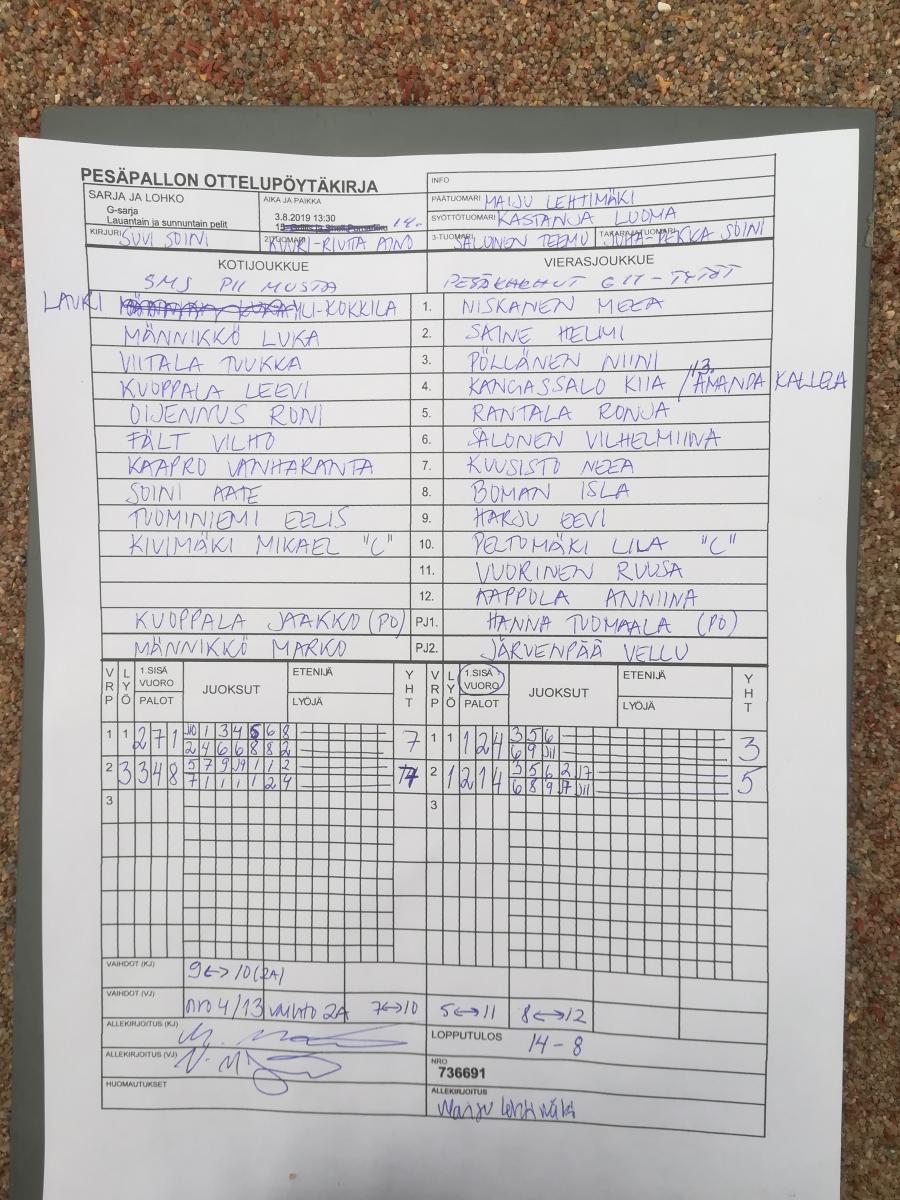 PESÄPALLON OTTELUPÖYTÄKIRJA
INFO
SARJA JA LOHKO
G-sarja
Lauantain ja sunnuntain pelit
AIKA JA PAIKKA
3.8.2019 13:30
14.
PÄÄTUOMARI MAIJU LEHTIMÄKI
SYÖTTÖTUOMARI KASTANJA LUOMA
KIRJURI SUVI SOINI
2-TUOMARI AINO
3-TUOMARI SALONEN TEEMU
TAKARAJATUOMARI JUHA-PEKKA SOINI
KOTIJOUKKUE
SMS PII MUSTA
VIERASJOUKKUE
PESÄKARHUT G11-TYTÖT
LAURI YLI-KOKKILA 1. NISKANEN MEEA
MÄNNIKKÖ LUKA 2. SAINE HELMI
VIITALA TUUKKA 3. PÖLLÄNEN NIINI
KUOPPALA LEEVI 4. KANGASSALO KIIA /13. AMANDA KALLELA
OIJENNUS RONI 5. RANTALA RONJA
FÄLT VILHO 6. SALONEN VILHELMIINA
KAAPRO VANHARANTA 7. KUUSISTO NEEA
SOINI AATE 8. BOMAN ISLA
TUOMINIEMI EELIS 9. HARJU EEVI
KIVIMÄKI MIKAEL "C" 10. PELTOMÄKI LILA "C"
11. VUORINEN RUUSA
12. AAPPOLA ANNIINA
KUOPPALA JAAKKO (PO) PJ1. HANNA TUOMAALA (PO)
MÄNNIKKÖ MARKO PJ2. JÄRVENPÄÄ VELLU
VRP LYÖ 1.SISÄ VUORO PALOT JUOKSUT ETENIJÄ LYÖJÄ YHT VRP LYÖ 1.SISÄ VUORO PALOT JUOKSUT ETENIJÄ LYÖJÄ YHT
1 1 2 7 1 10 1 3 4 5 6 8 7 1 1 1 2 4 3 5 6 3
2 4 6 6 8 8 2 6 9 11
2 3 3 4 8 5 7 9 19 1 1 2 7 2 1 2 1 4 3 5 6 2 17 5
7 1 1 1 1 2 4 6 8 9 7 11
3 3
VAIHDOT (KJ) 9<->10(2A)
VAIHDOT (VJ) nro 4/13 vaihto 2A 7<->10 5<->11 8<->12
ALLEKIRJOITUS (KJ)
LOPPUTULOS 14-8
ALLEKIRJOITUS (VJ)
NRO
736691
HUOMAUTUKSET
ALLEKIRJOITUS
Maiju Lehtimäki